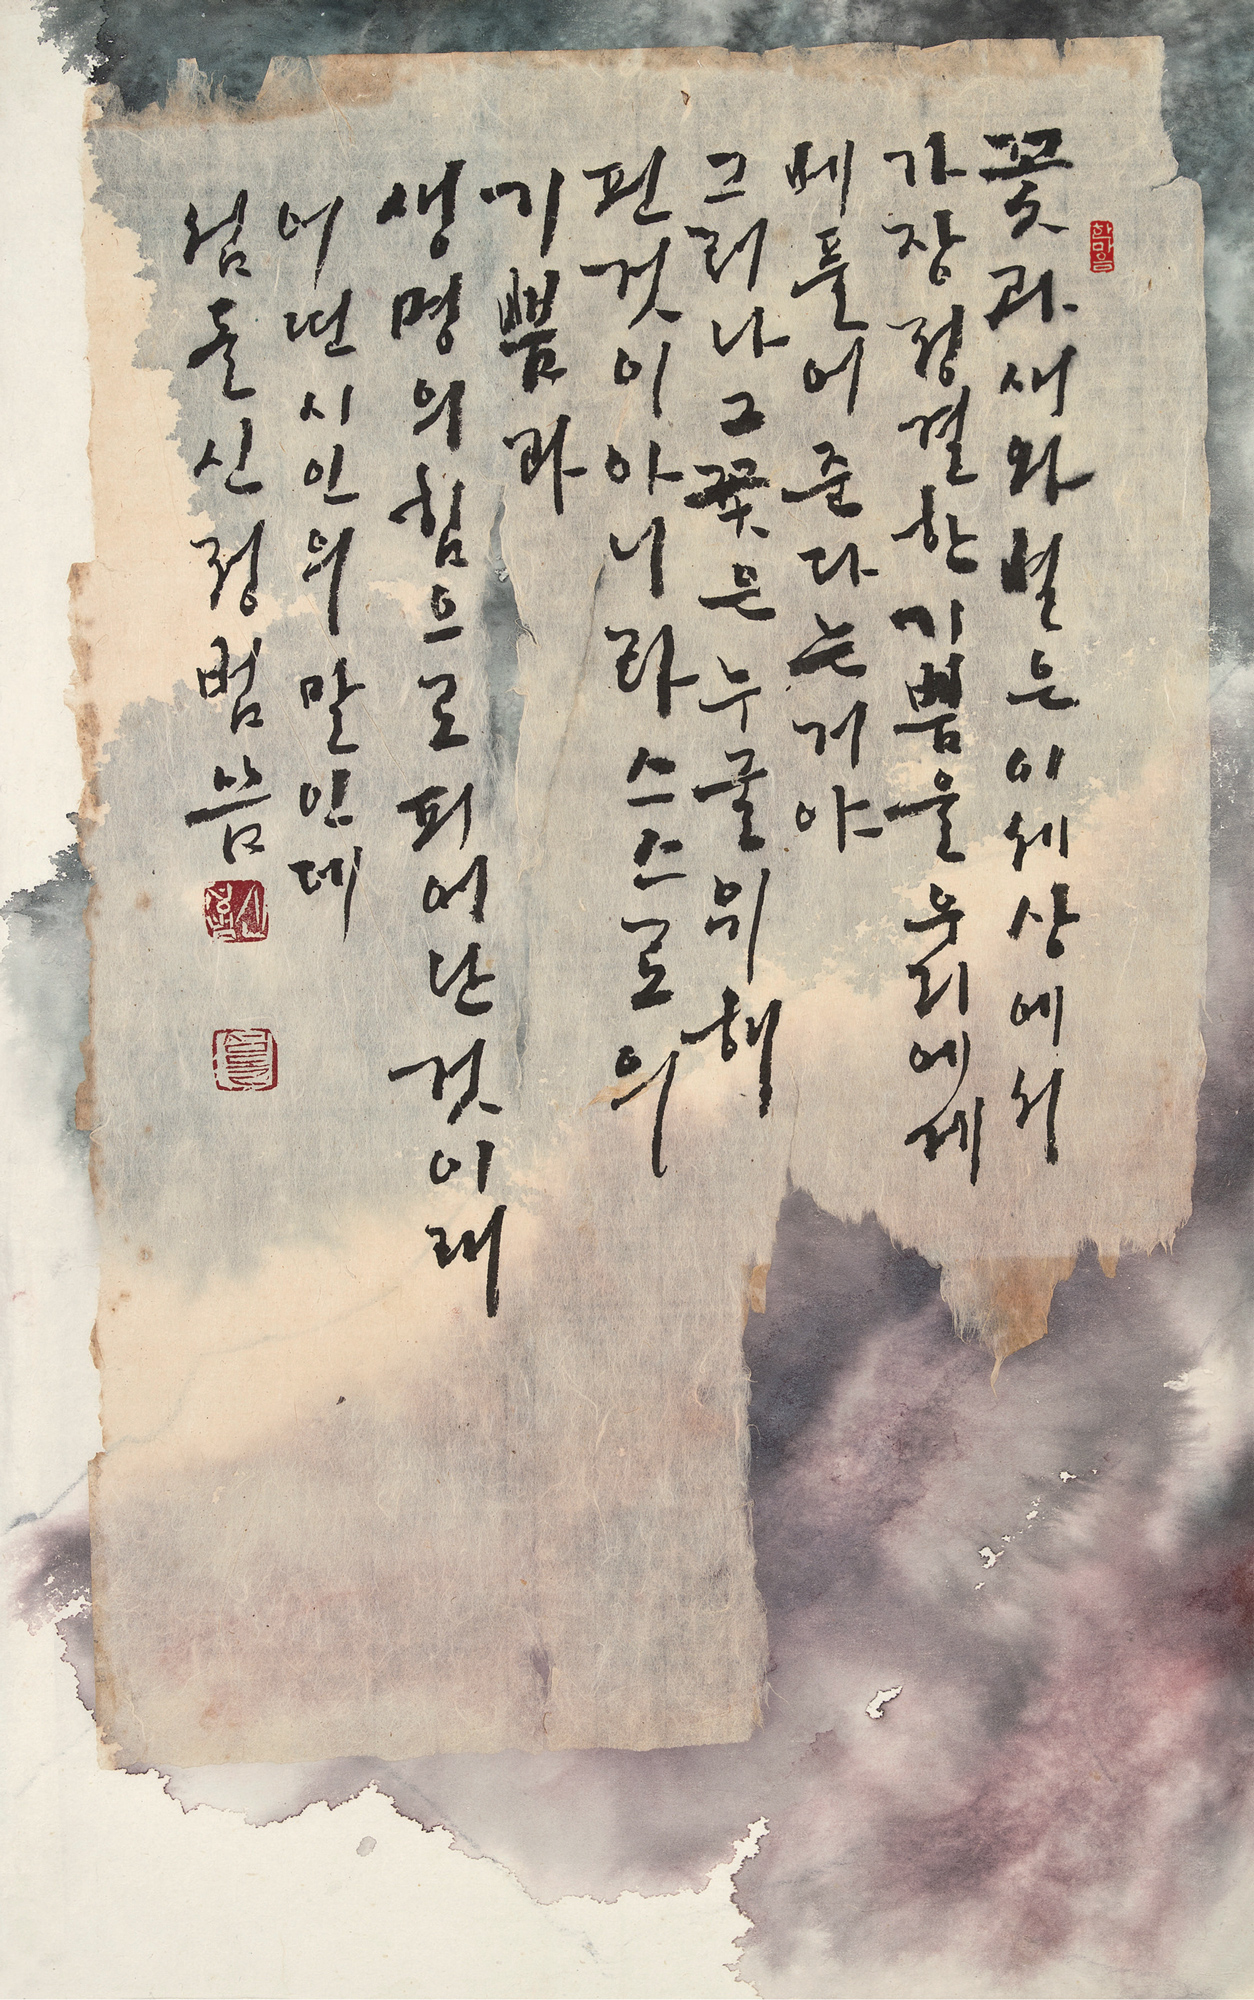 한마음
꽃과새와별은이세상에서
가장정결한기쁨을우리에게
베풀어준다는거야
그러나그꽃은누굴위해
핀것이아니라스스로의
기쁨과
생명의힘으로피어난것이래
어떤시인의말인데
섬돌신정범씀
신정범